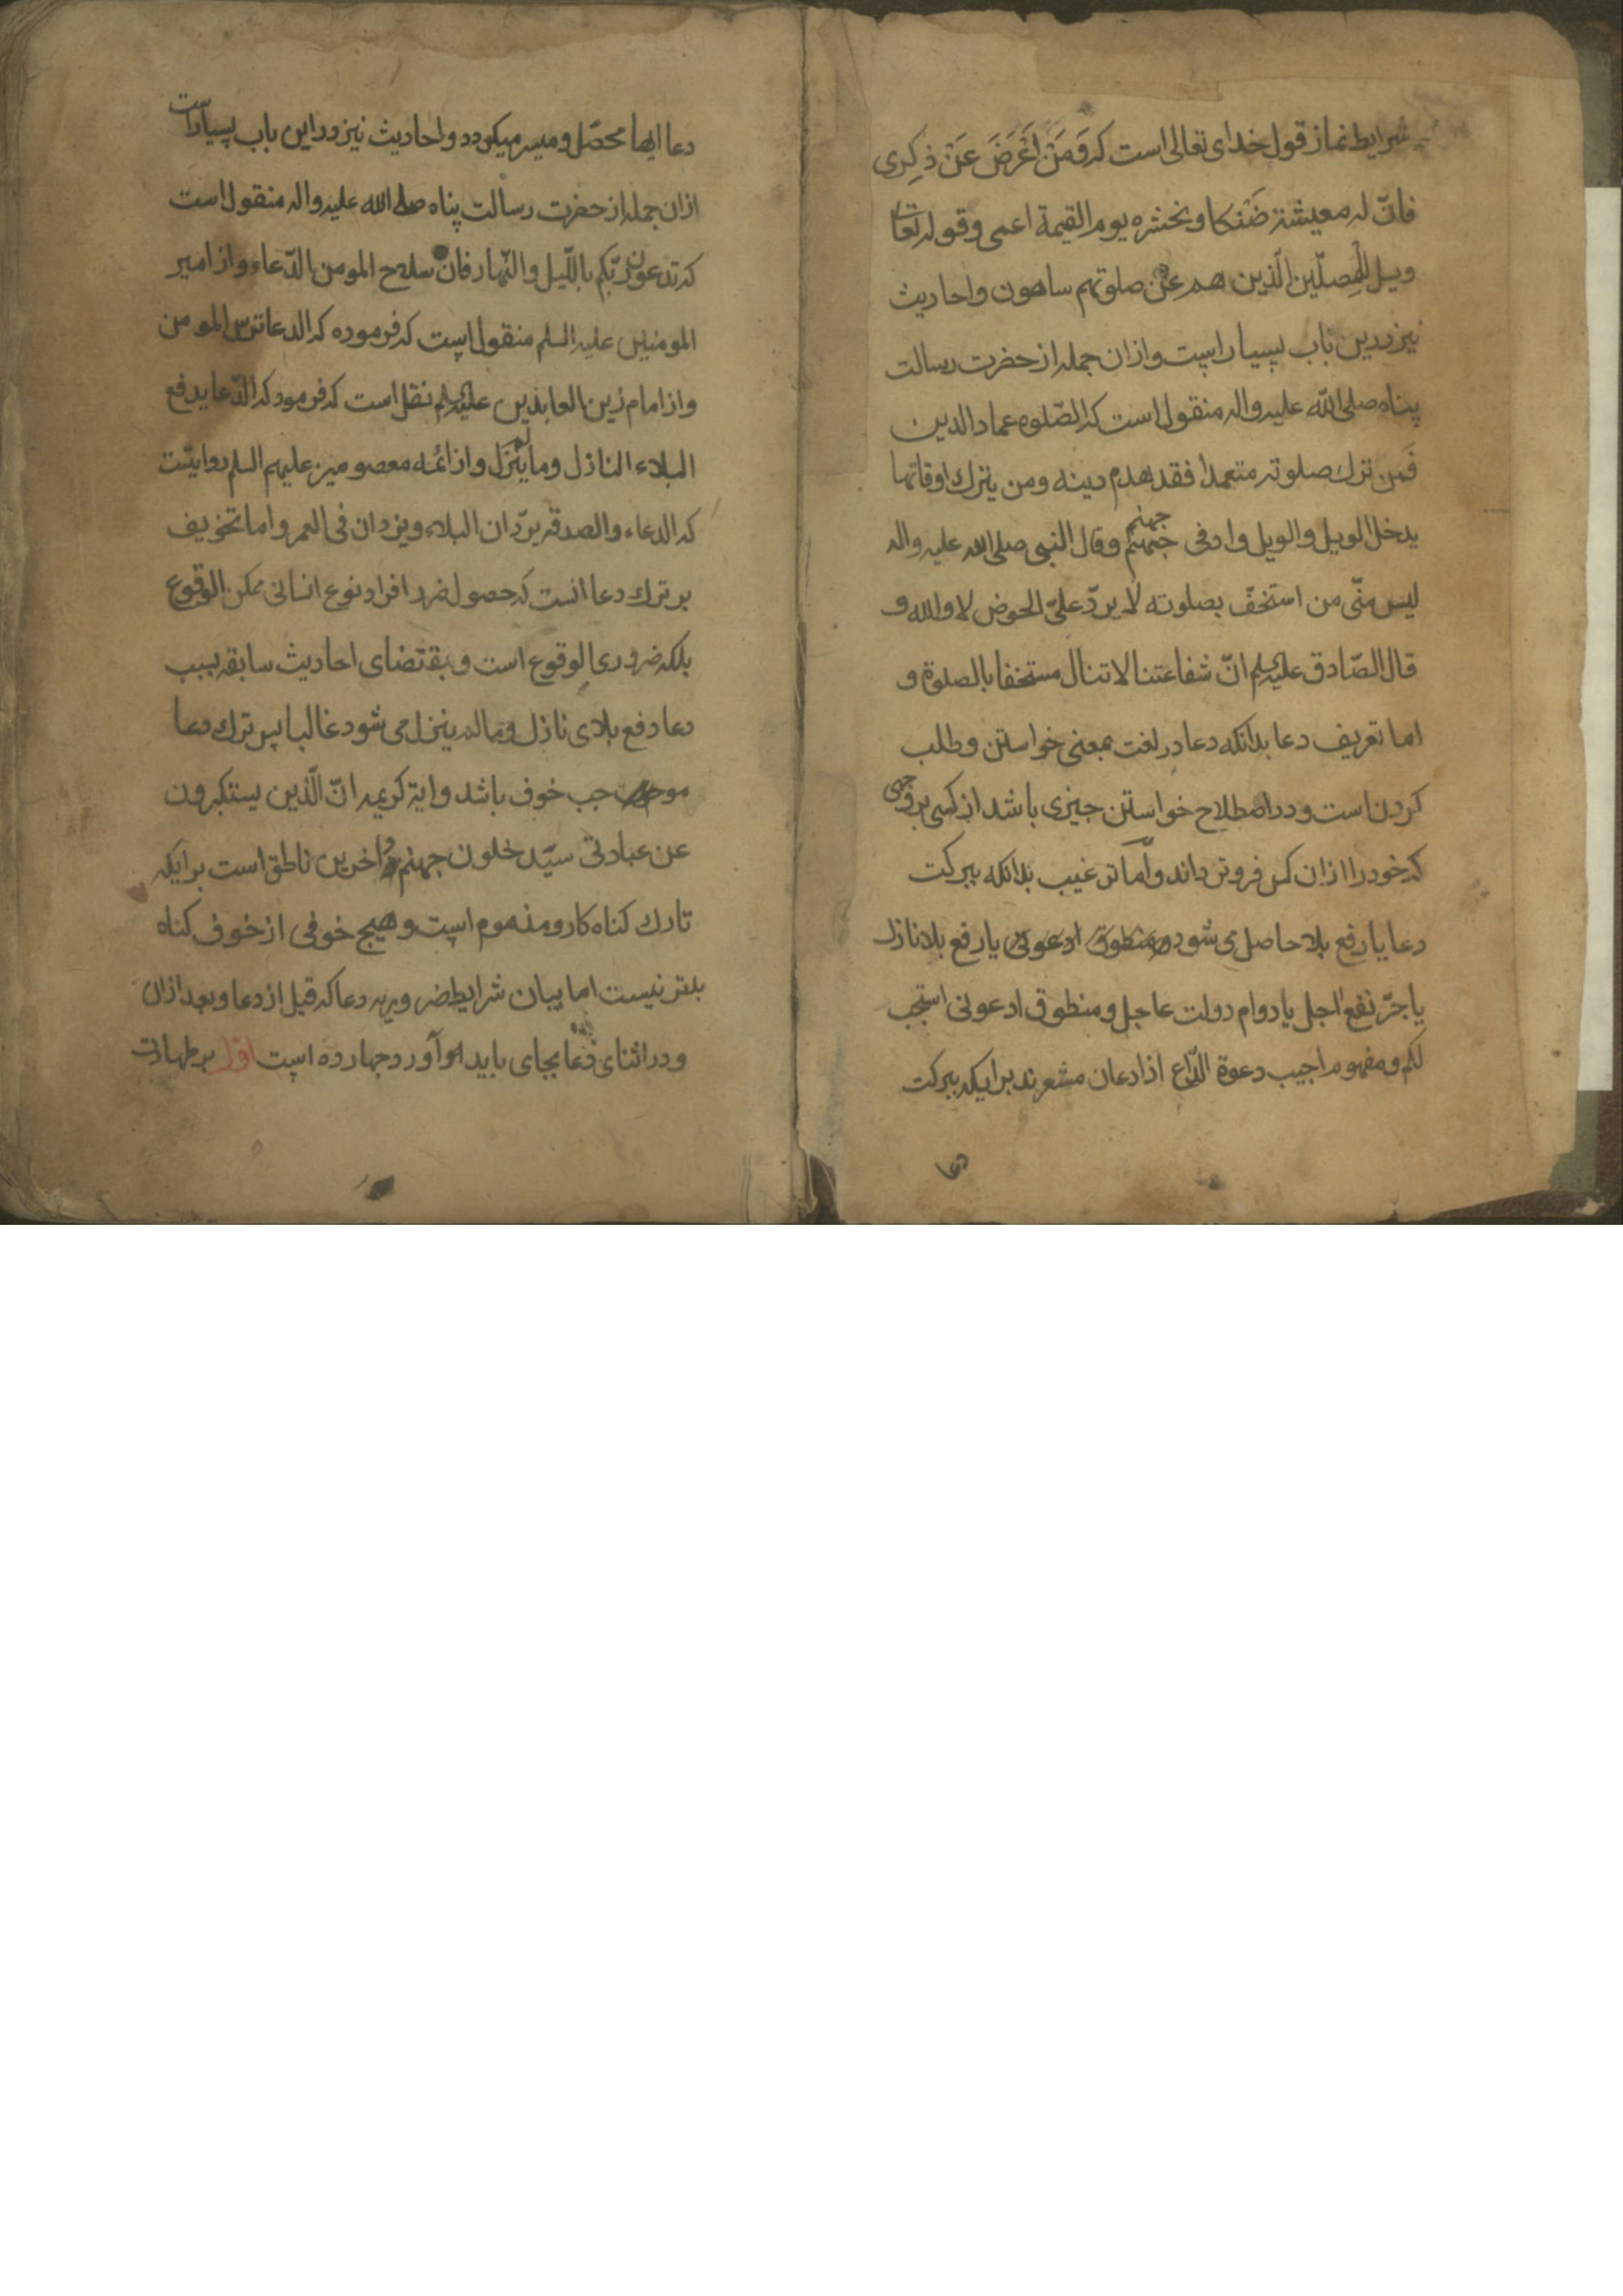 شرایط نماز قول خدای تعالی است که وَمَنْ اَعْرَضَ عَنْ ذِکِری
فانّ له معیشة ضَنْکا ونحشره یوم القیمة اعمی وقوله تعا
ویل للمصلّین الّذین هم عن صلوتهم ساهون واحادیث
نیز درین باب بسیار است وازان جمله از حضرت رسالت
پناه صلی الله علیه واله منقول است که الصّلوه عماد الدین
فَمن ترك صلوته متعمدا فقد هدم دینه ومن یترك اوقاتها
یدخل الویل والویل واد فی جهنم وقال النبی صلی الله علیه واله
لیس منّی من استخفّ بصلوته لا یردّ علیّ الحوض لا والله و
قال الصّادق علیه السلم انّ شفاعتنا لا تنال مستخفا بالصلوة و
اما تعریف دعا بدانکه دعا در لغت بمعنی خواستن وطلب
کردن است ودر اصطلاح خواستن چیزی باشد از کسی بر وجهی
که خود را ازان کس فروتر داند وامّا ترغیب بدانکه ببرکت
دعا یا رفع بلا حاصل می شود ومنطوق ادعونی یا رفع بلا نازل
یا جرّ نفع اجل یا دوام دولت عاجل ومنطوق ادعونی استجب
لکم ومفهوم اجیب دعوة الدّاع اذا دعان مشعرند بر اینکه ببرکت
دعا
دعا اینها محصّل ومیسر میکردد واحادیث نیز در این باب بسیار است
ازان جمله از حضرت رسالت پناه صلی الله علیه واله منقول است
که تدعون ربّکم باللّیل والنّهار فانّ سلاح المومن الدّعاء واز امیر
المومنین علیه السلم منقول است که فرموده که الدعا ترس المومن
واز امام زین العابدین علیه السلم نقل است که فرمود که الدّعا یدفع
البلاء النازل وما لم ینزل واز ائمه معصومین علیهم السلم روایتست
که الدعاء والصدقه یردّان البلاء ویزدان فی العمر واما تخویف
بر ترك دعا انست که حصول ضرر افراد نوع انسانی ممکن الوقوع
بلکه ضروری الوقوع است وبمقتضای احادیث سابقه بسبب
دعا دفع بلای نازل وما لم ینزل می شود غالبا پس ترك دعا
موجب خوف باشد وایة کریمه انّ الّذین یستکبرون
عن عبادتی سیّدخلون جهنم داخرین ناطق است بر اینکه
تارك کناه کار ومذموم است وهیچ خوفی از خوف کناه
بلتر نیست اما بیان شرایط ضروریه دعا که قبل از دعا وبعد ازان
ودر اثنای دعا بجای باید آورد چهارده است اوّل بر طهارت